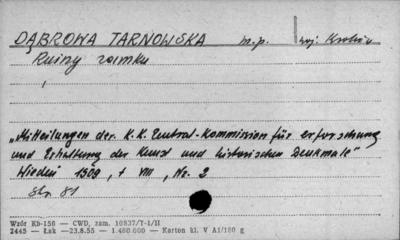 DĄBROWA TARNOWSKA m.p. woj. Kraków
Ruiny zamku
"Mitteilungen der K.K. Zentral-Kommission für erforschung
und Erhaltung der Kunst und historischen Denkmale"
Wiedeń 1909, t VIII, Nr. 2
str 81
Wzór Kb-156 — CWD, zam. 10837/T-1/II
2445 — Łsk —23.8.55 — 1.480.000 — Karton kl. V A1/180 g